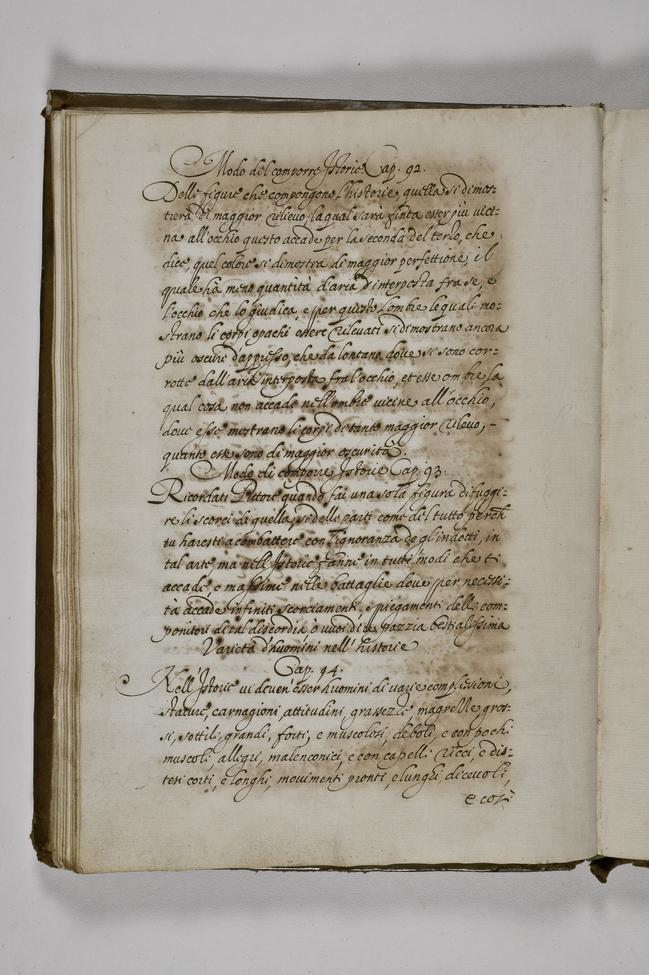 Modo del comporre Istorie Cap. 92.
Delle figure che compongono l'historie, quella si dimos-
trerà di maggior rilievo, la qual sarà finta esser più vici-
na all'occhio questo accade per la seconda del terzo, che
dice, quel colore si dimostra di maggior perfettione, il
quale hà meno quantità d'aria d'interposta fra se, e
l'occhio che lo giudica, e per questo l'ombre le quali mo-
strano li corpi opachi essere rilevati si dimostrano ancora
più oscure d'appresso, che da lontano, dove si sono cor-
rotte dall'aria interposta fra l'occhio, et esse ombre la
qual cosa non accade nell'ombre vicine all'occhio,
dove esse mostrano li corpi di tanto maggior rilievo, -
quanto esse sono di maggior oscurità.
Modo di comporre Istorie Cap. 93.
Ricordati Pittore quando fai una sola figura di fuggi-
re li scorci di quella, si delle parti come del tutto perch
tu haresti a combattere con l'ignoranza de gl'indotti, in
tal arte, ma nell'Istorie fanne in tutti i modi che ti
accade, e massime nelle battaglie dove per necessi-
tà accade infiniti scorciamenti, e piegamenti delli com-
ponitori di tal discordia, o vuoi dire pazzia bestialissima
Varietà d'huomini nell'historie
Cap. 94.
Nell'Istorie vi deven'esser huomini di varie complessioni,
stature, carnagioni, attitudini, grassezze magrezze gros-
si, sottili, grandi, forti, e muscolosi, deboli, e con pochi
muscoli, allegri, malenconici, e con capelli ricci, e dis-
tesi corti, e longhi, movimenti pronti, e lunghi dicevoli,
e cosi